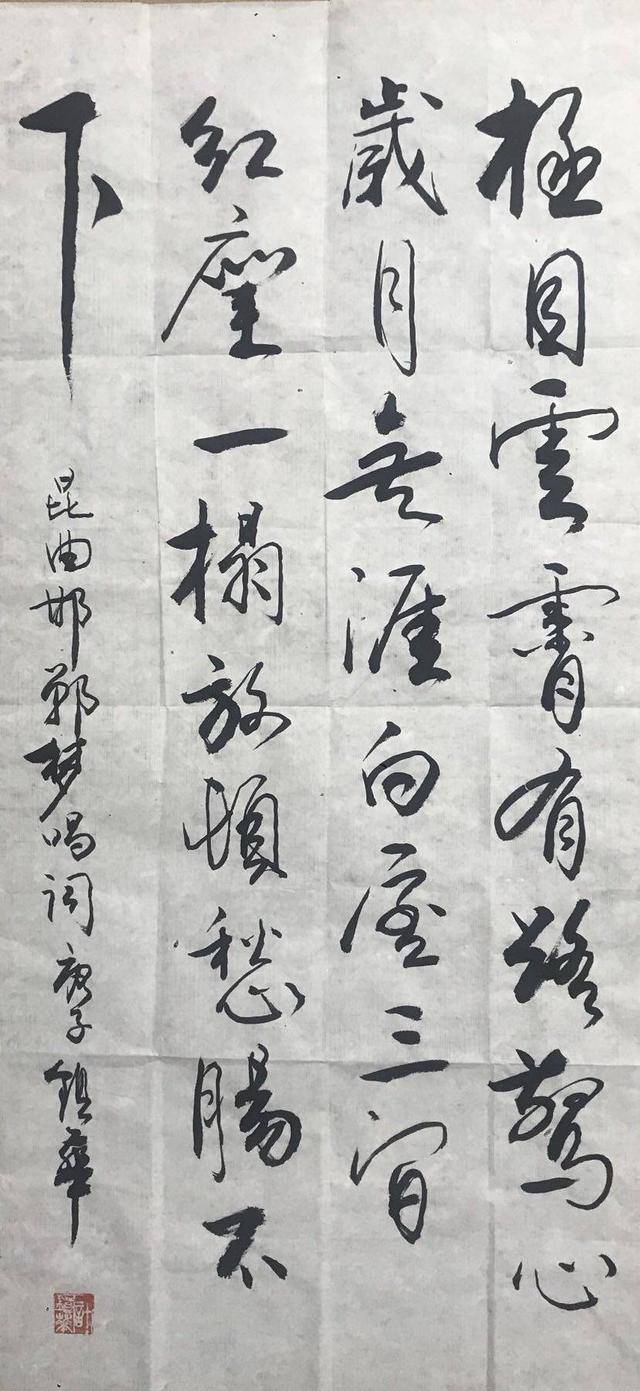 極目雲霄有路驚心
歲月無涯白屋三間
紅塵一榻放頓愁腸不
下
昆曲邯鄲梦唱词 庚子 鎮華
計鎮華